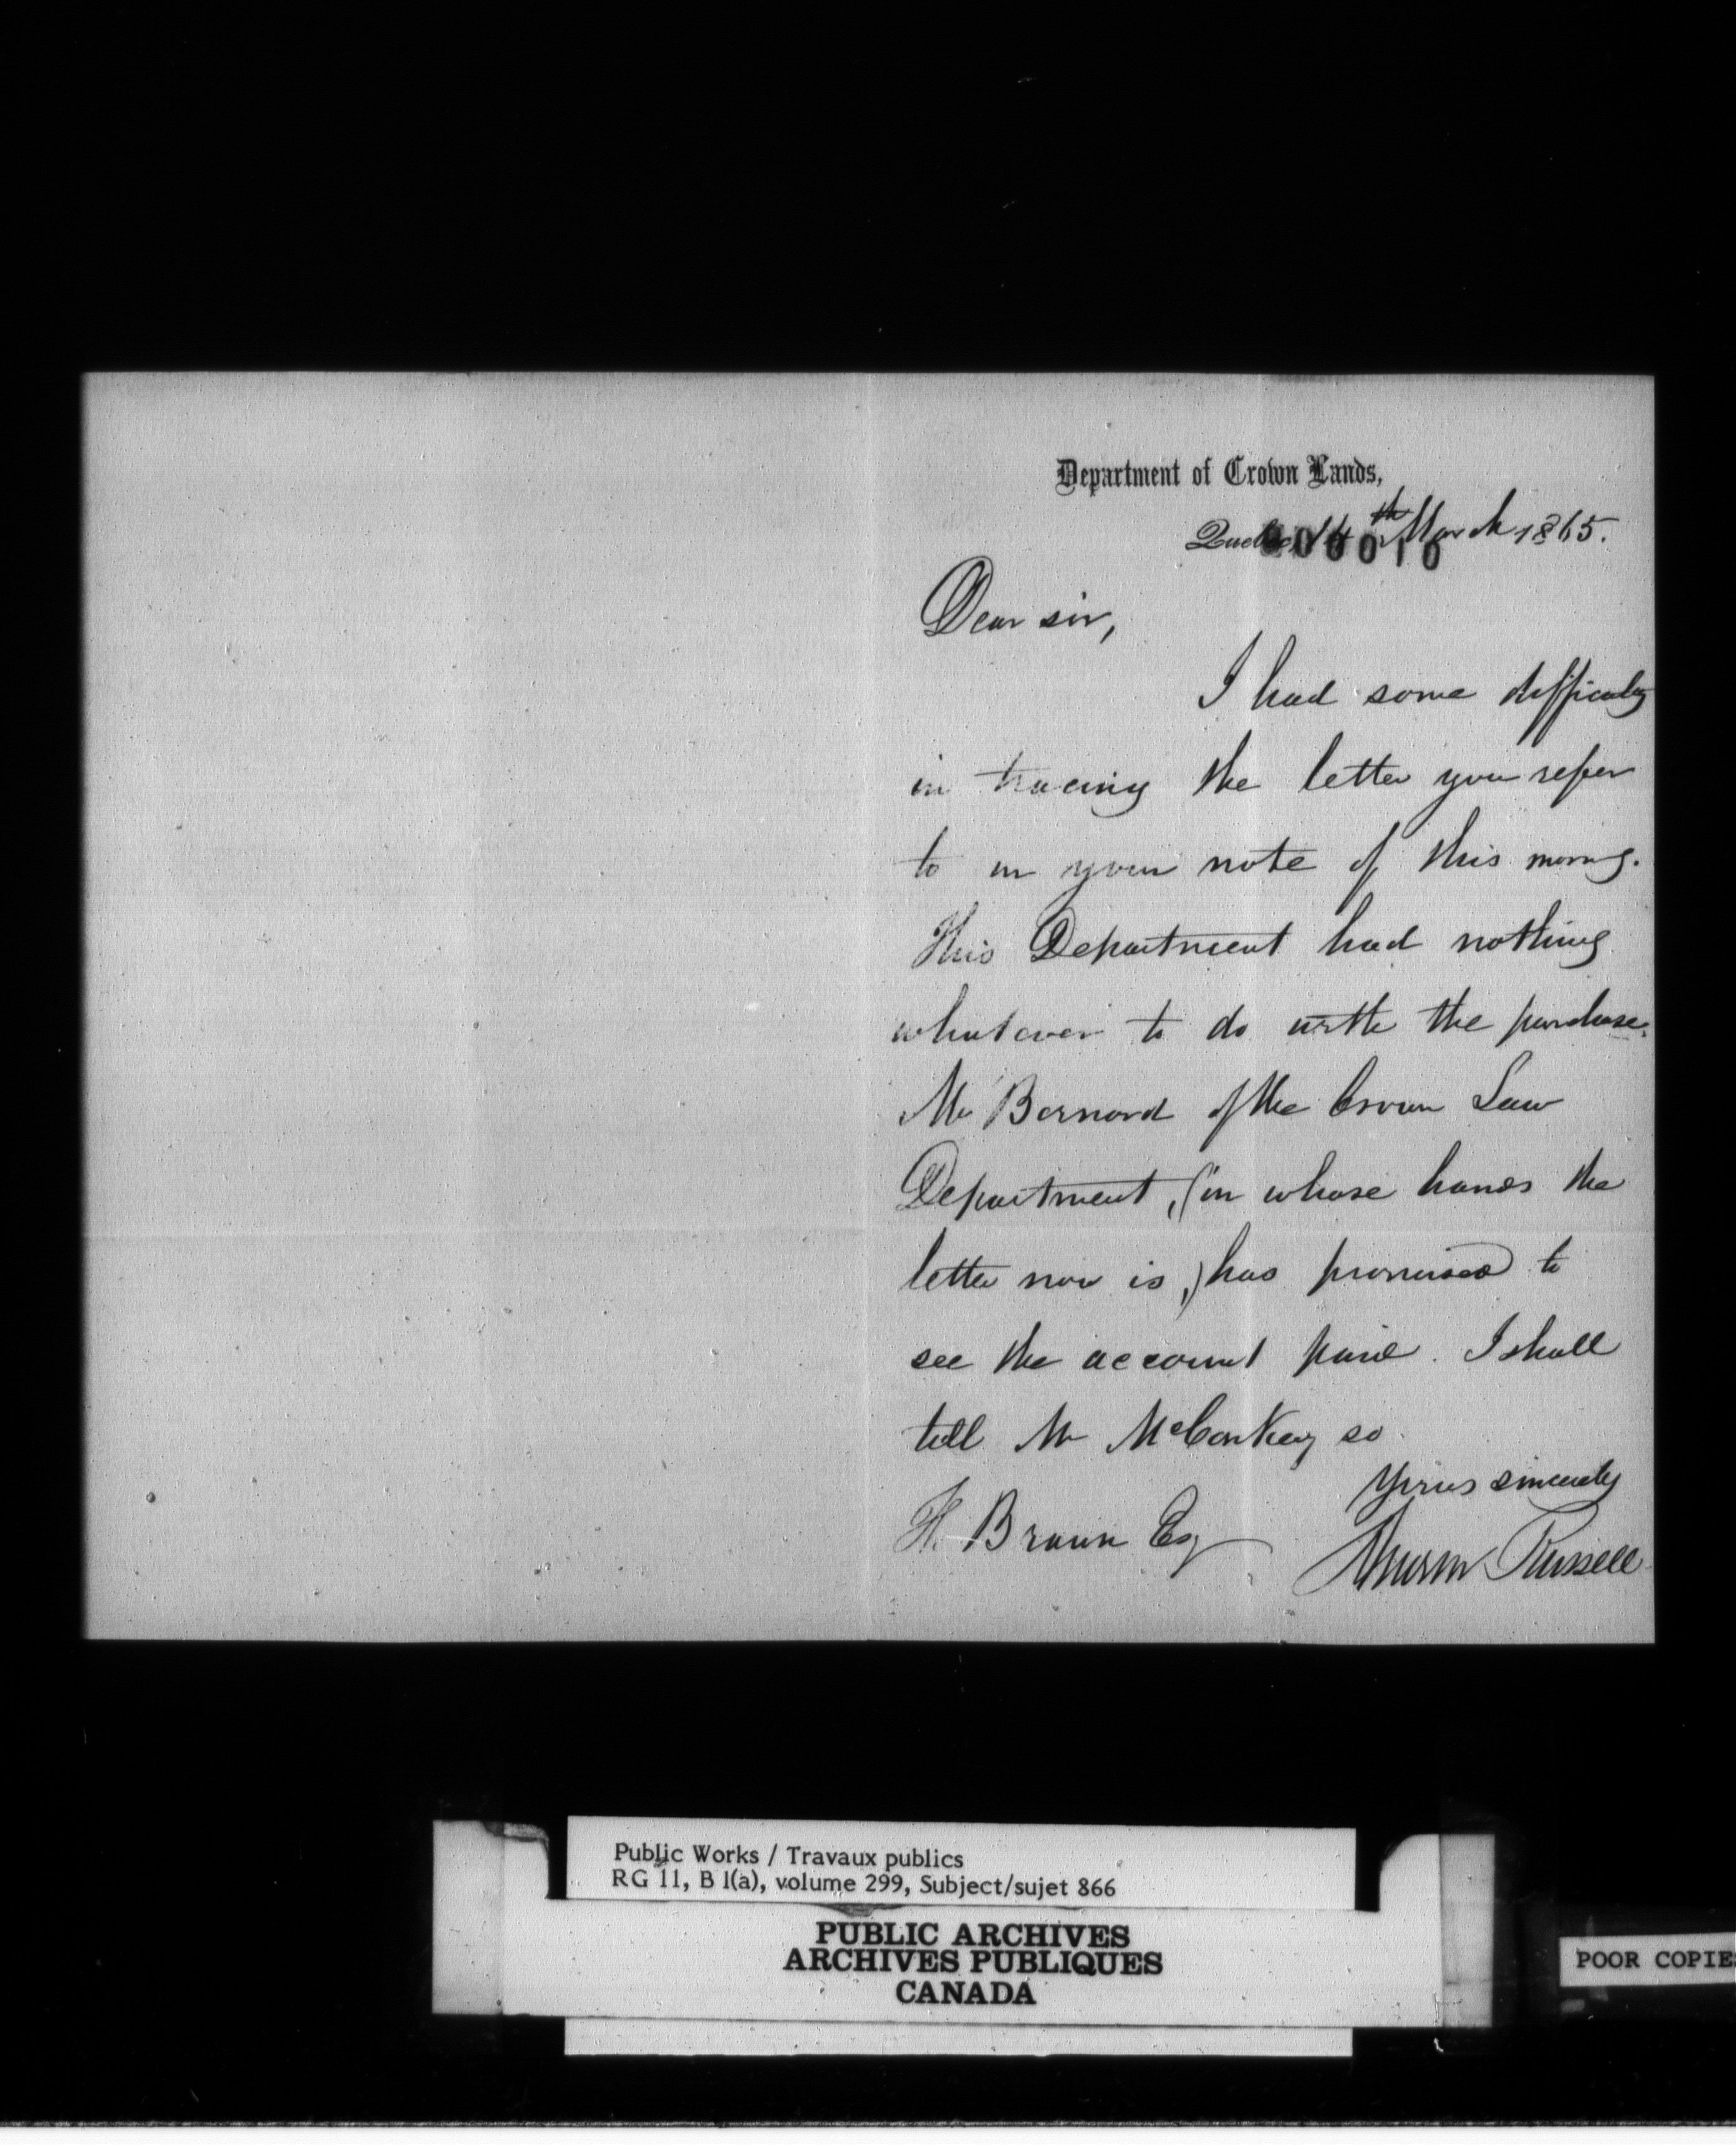 Department of Crown Lands,
Quebec, 14th March 1865.
000010
Dear sir,
I had some difficulty
in tracing the letter you refer
to in your note of this morng.
This Department had nothing
whatever to do with the purchase.
Mr Bernard of the Crown Law
Department, (in whose hands the
letter now is,) has promised to
see the account paid. I shall
tell Mr McConkey so.
Yours sincerely
Russell
F. Braun Esq
Public Works / Travaux publics
RG 11, B 1(a), volume 299, Subject/sujet 866
PUBLIC ARCHIVES
ARCHIVES PUBLIQUES
CANADA
POOR COPIES